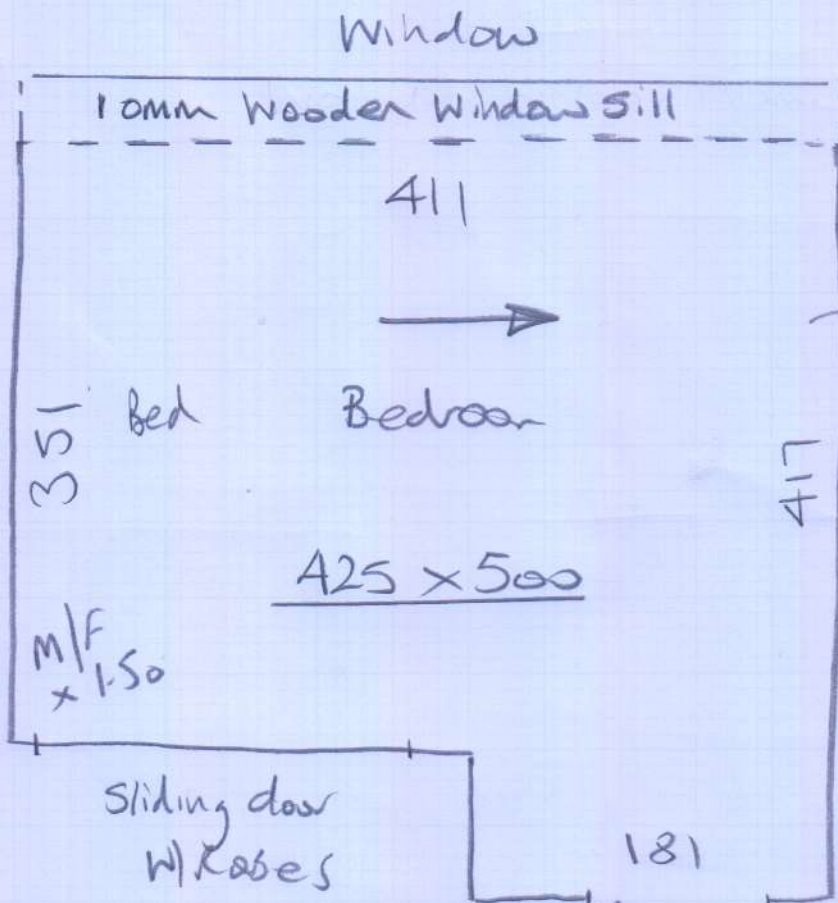 Window
10mm Wooden Window Sill
411
351
Bed
Bedroom
417
425 x 500
M/F
x 1.50
Sliding door
W/Robes
181